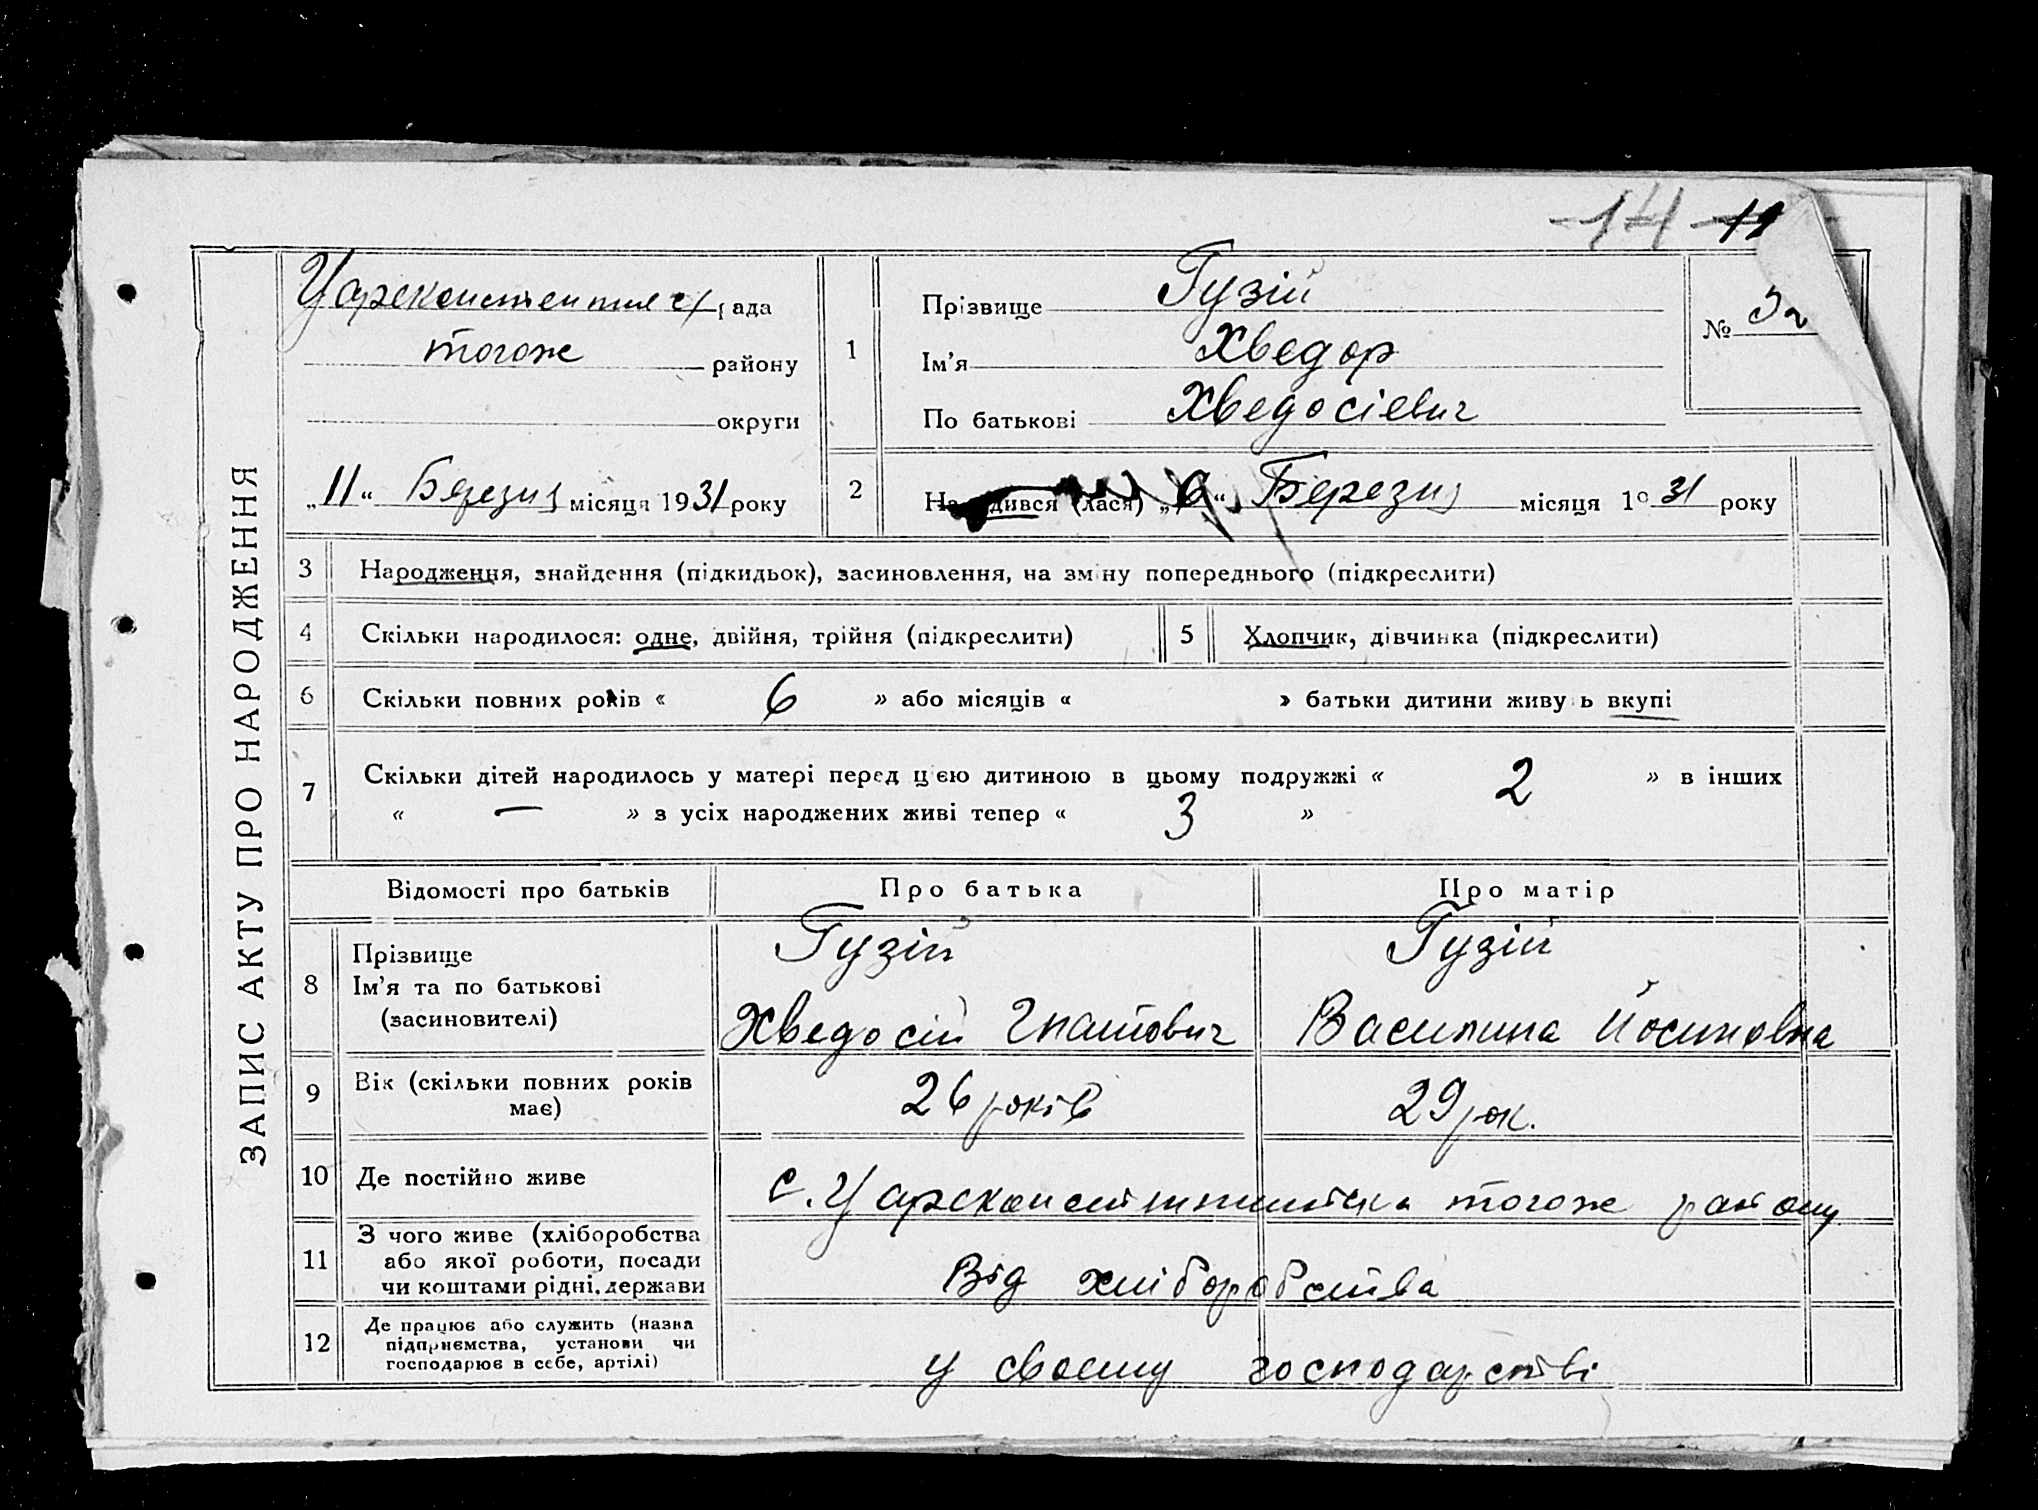 14 11
ЗАПИС АКТУ ПРО НАРОДЖЕННЯ
Царсконстянтин с/рада
тогоже району
округи
„11“ Березня місяця 1931 року
1
Прізвище Гузій
Ім'я Хведор
По батькові Хведосієвич
№ 52
2 Народився (лася) „6“ Березня місяця 1931 року
3 Народження, знайдення (підкидьок), засиновлення, на зміну попереднього (підкреслити)
4 Скільки народилося: одне, двійня, трійня (підкреслити) 5 Хлопчик, дівчинка (підкреслити)
6 Скільки повних років « 6 » або місяців « » батьки дитини живуть вкупі
7 Скільки дітей народилось у матері перед цією дитиною в цьому подружжі « 2 » в інших
« — » з усіх народжених живі тепер « 3 »
Відомості про батьків Про батька Про матір
8 Прізвище
Ім'я та по батькові
(засиновителі)
Гузій Гузій
Хведосій Гнатович Василина Йосиповна
9 Вік (скільки повних років
має)
26 років 29 рок.
10 Де постійно живе с. Царсконстянтинівка тогоже району
11 З чого живе (хліборобства
або якої роботи, посади
чи коштами рідні, держави
Від хліборобства
12 Де працює або служить (назва
підприємства, установи чи
господарює в себе, артілі)
у своєму господарстві